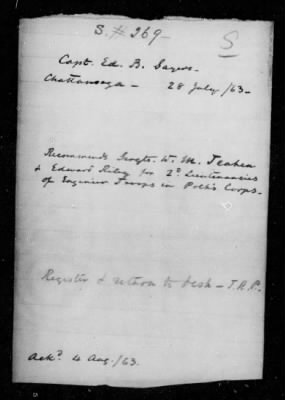 S. # 269 -
S
Capt. Ed. B. Sayers -
Chattanooga - 28 July /63 -
Recommends Sergts W. M.
& Edward Riley for 2d. Lieutenancies
of Engineer Troops in Polk's Corps -
Register & return to desk - J.A.P.
Ackd. 4 Aug. /63.